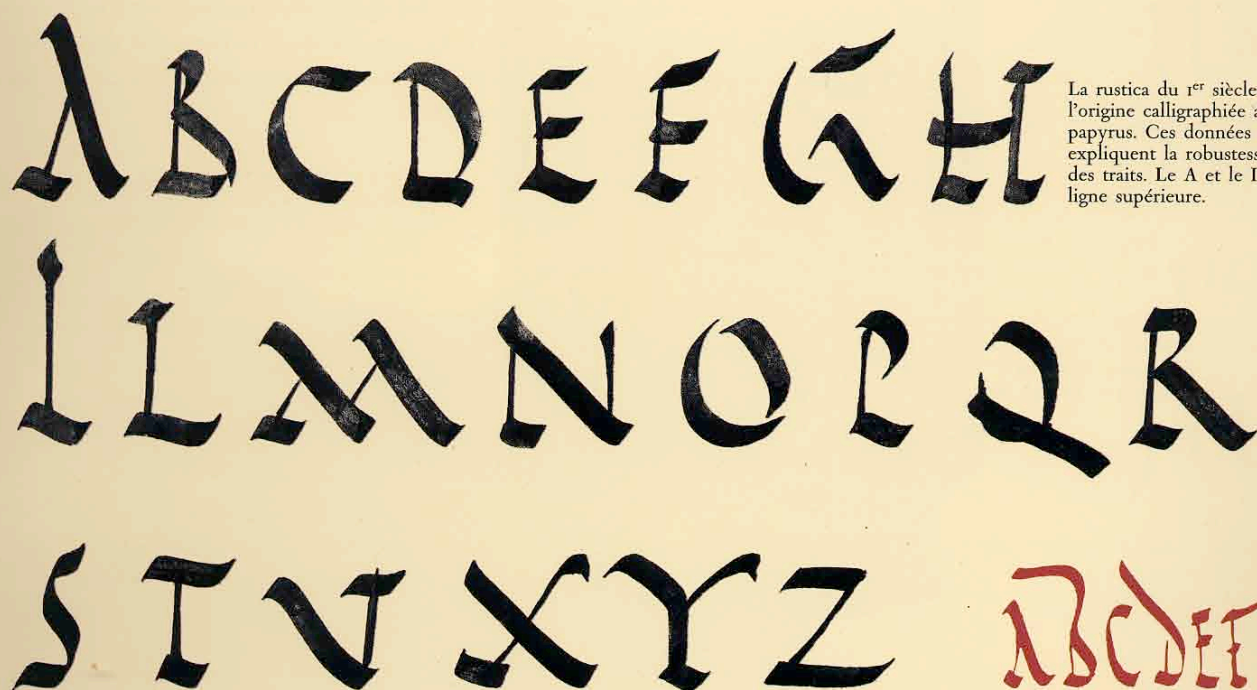 A B C D E F G H
La rustica du Iᵉʳ siècle
l'origine calligraphiée
papyrus. Ces données
expliquent la robustess
des traits. Le A et le
ligne supérieure.
I L M N O P Q R
S T V X Y Z
ABCDEF